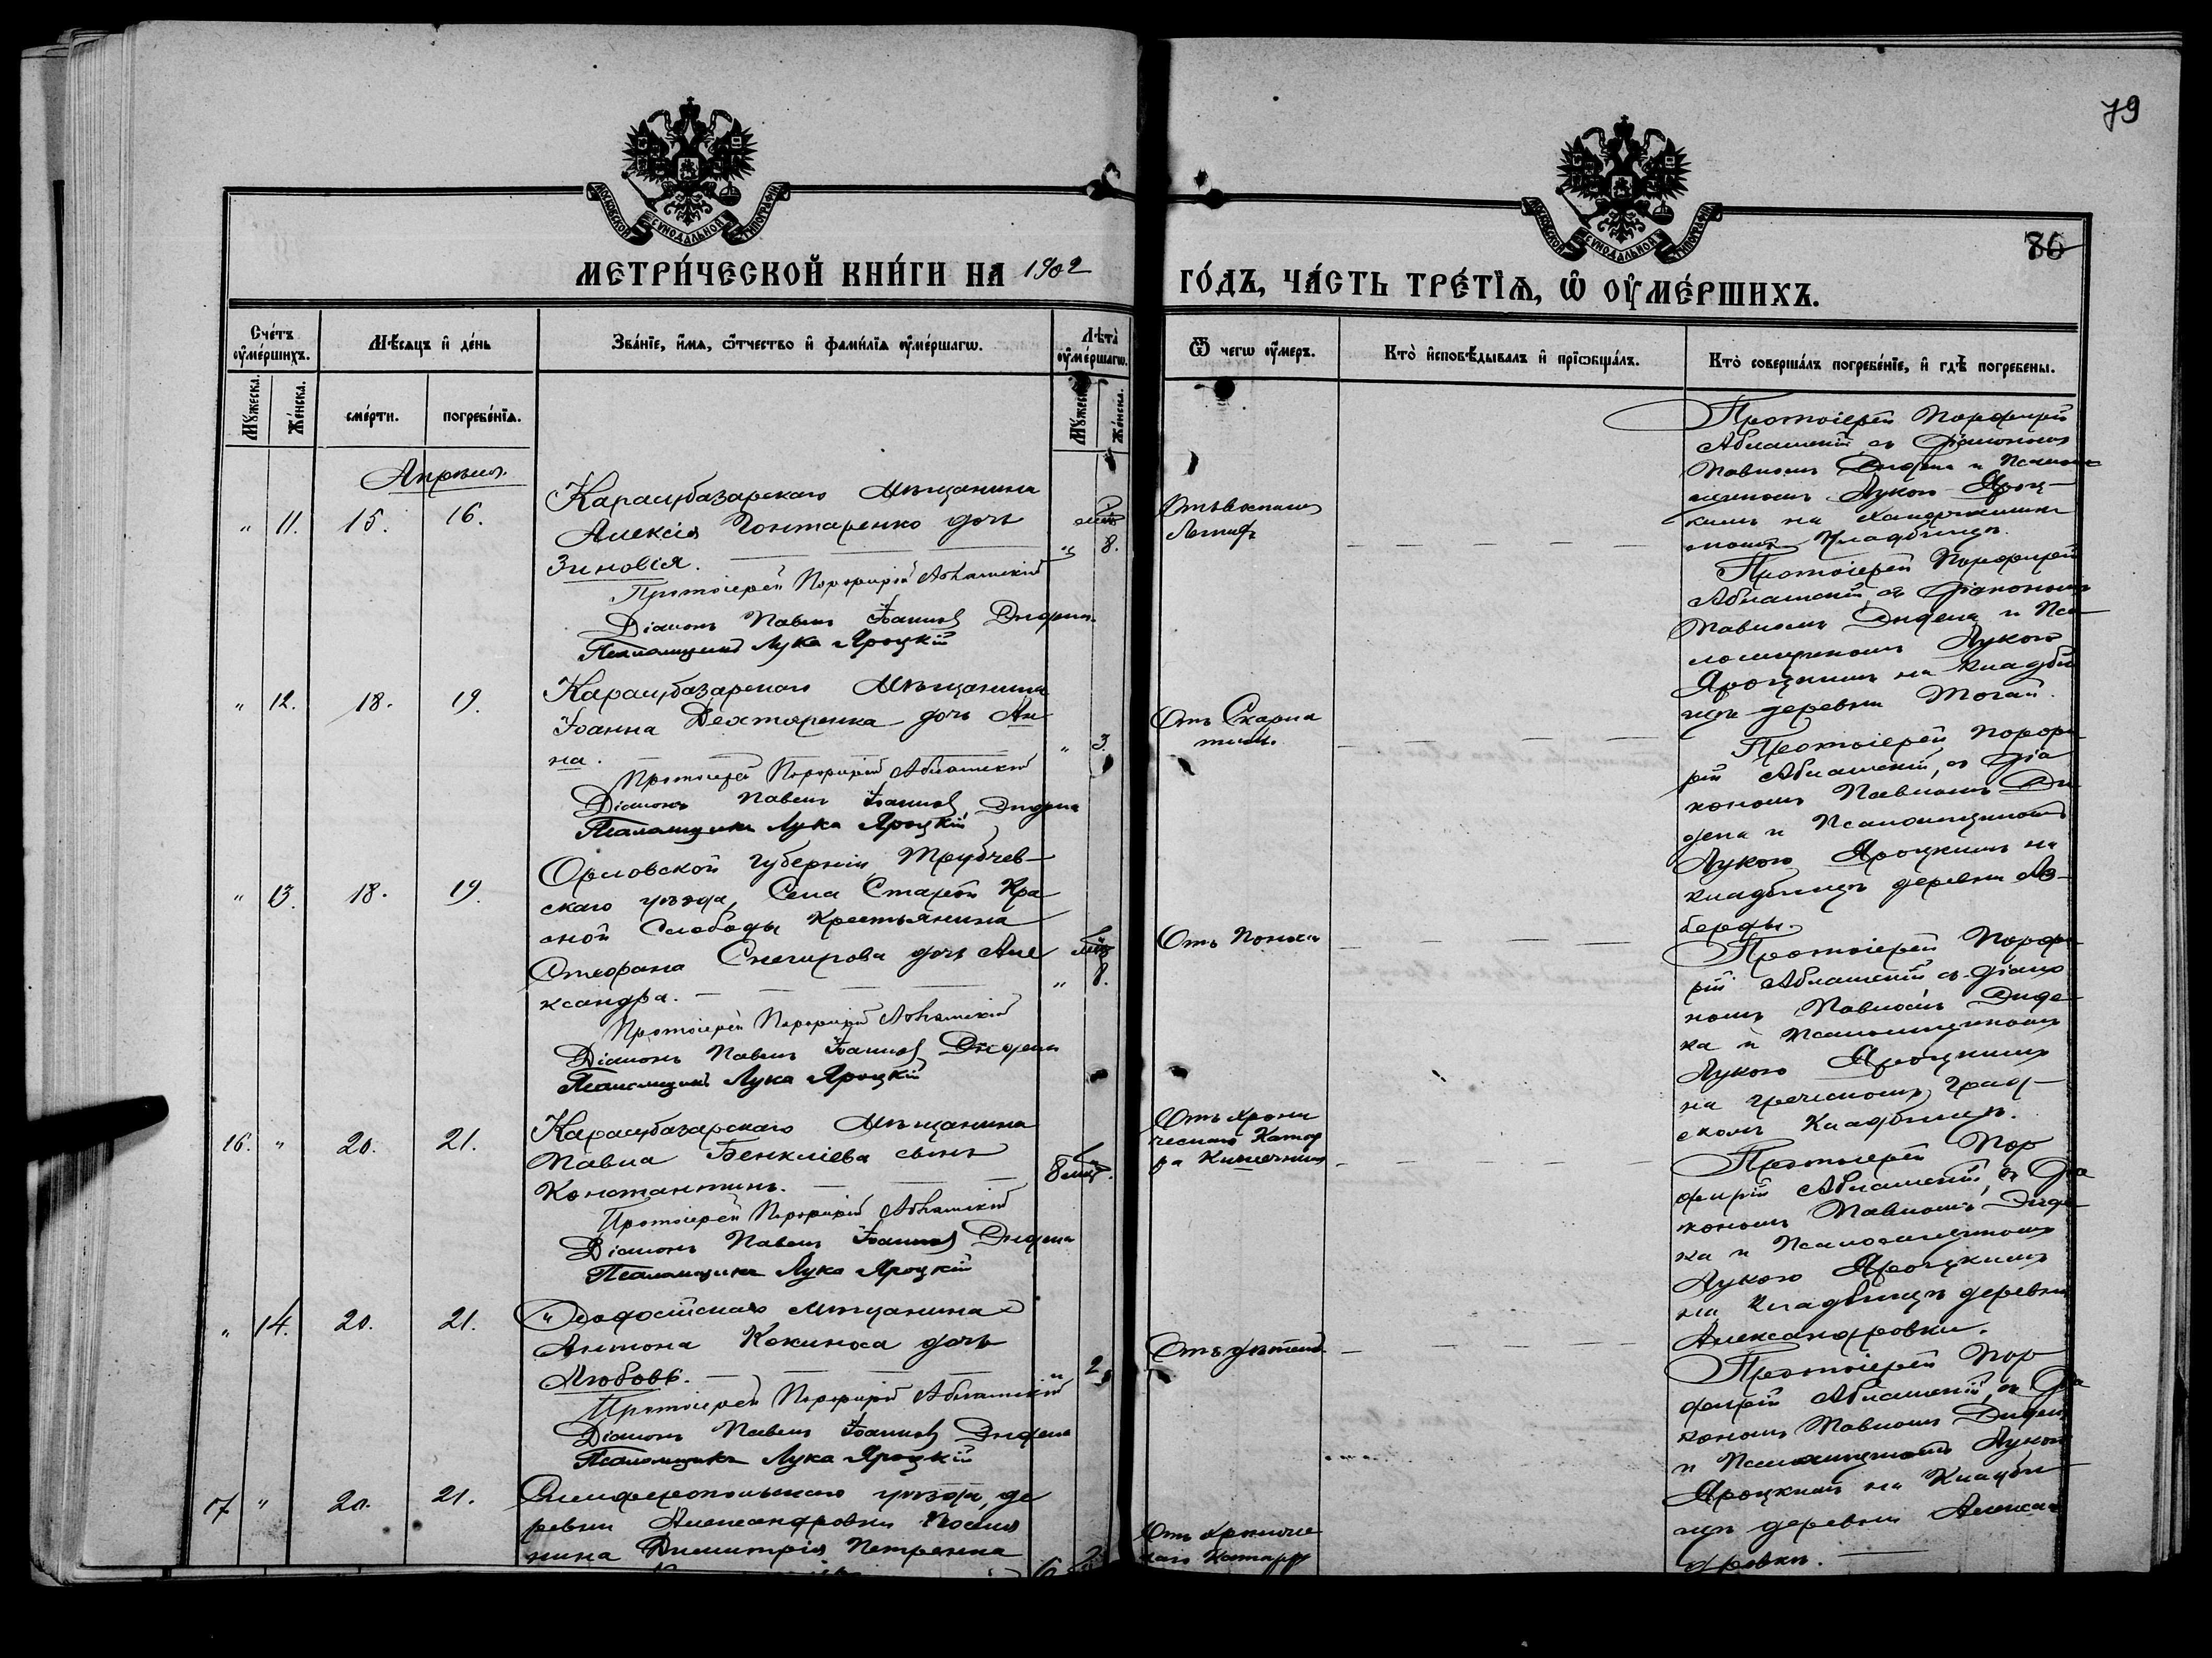 79
МОСКОВСКОЙ СѴНОДАЛЬНОЙ ТИПОГРАФІИ
МОСКОВСКОЙ СѴНОДАЛЬНОЙ ТИПОГРАФІИ
86
МЕТРИ́ЧЕСКОЙ КНИ́ГИ НА 1902 ГО́ДЪ, ЧА́СТЬ ТРЕ́ТІѦ, Ѿ ОУ҆МЕ́РШИХЪ.
Сче́тъ оу҆ме́ршихъ.
Мꙋ́жеска.
Же́нска.
Мѣ́сяцъ и҆ де́нь
сме́рти.
погребе́нїѧ.
Зва́нїе, и҆́мѧ, ѻ҆́тчество и҆ фами́лїѧ оу҆ме́ршагѡ.
Лѣта̀ оу҆ме́ршагѡ.
Мꙋ́жеска.
Же́нска.
Ѿ чегѡ̀ оу҆́меръ.
Кто̀ и҆сповѣ́дывалъ и҆ прїѡбща́лъ.
Кто̀ соверша́лъ погребе́нїе, и҆ гдѣ̀ погребены.
Апрѣля.
" 11. 15. 16.
Карасубазарскаго Мѣщанина
Алексія Гонтаренко дочь
Зиновія.
" 8.
Протоіерей Порфирій Абламскій
Діаконъ Павелъ Іоанновъ Дидена
Псаломщикъ Лука Яроцкій
Протоіерей Порфирій
Абламскій съ Діакономъ
Павломъ Дидена и Псалом
щикомъ Лукою Яроц-
кимъ на
Кладбищѣ.
" 12. 18. 19.
Карасубазарскаго Мѣщанина
Іоанна Дехтяренка дочь Ан
на.
" 3
Протоіерей Порфирій Абламскій
Діаконъ Павелъ Іоанновъ Дидена
Псаломщикъ Лука Яроцкій
Отъ Скарла
тины.
Протоіерей Порфирій
Абламскій, съ Діакономъ
Павломъ Дидена и Пса
ломщикомъ Лукою
Яроцкимъ на кладби
щѣ деревни Тогай.
" 13. 18. 19.
Орловской губерніи, Трубчев-
скаго уѣзда, Села Старой Кра
сной Слободы Крестьянина
Стефана Снегирова дочь Але
ксандра.
" 8.
Протоіерей Порфирій Абламскій
Діаконъ Павелъ Іоанновъ Дидена
Псаломщикъ Лука Яроцкій
Отъ
Протоіерей Порфи
рій Абламскій, съ Діа
кономъ Павломъ Ди
дена и Псаломщикомъ
Лукою Яроцкимъ на
кладбищѣ деревни Аз-
берды.
16. " 20. 21.
Карасубазарскаго Мѣщанина
Павла Бенкліева сынъ
Константинъ.
8 мѣс.
Протоіерей Порфирій Абламскій
Діаконъ Павелъ Іоанновъ Дидена
Псаломщикъ Лука Яроцкій
Отъ хрони
ческаго Катар
ра Кишечника
Протоіерей Порфи
рій Абламскій съ Діако
номъ Павломъ Диде
на и Псаломщикомъ
Лукою Яроцкимъ
на греческомъ Град-
скомъ Кладбищѣ.
" 14. 20. 21.
Ѳеодосійскаго мѣщанина
Антона Кокиноса дочь
Любовь.
" 2
Протоіерей Порфирій Абламскій
Діаконъ Павелъ Іоанновъ Дидена
Псаломщикъ Лука Яроцкій
Протоіерей Пор
фирій Абламскій, съ Діа
кономъ Павломъ Диде
на и Псаломщикомъ
Лукою Яроцкимъ
на Кладбищѣ деревни
Александровки.
17 " 20. 21.
Симферопольскаго уѣзда, де
ревни Александровки Посел
нина Димитрія Петренка
Отъ хрониче
каго Катарра
Протоіерей Пор
фирій Абламскій, съ Діа
кономъ Павломъ Дидена
и Псаломщикомъ Лукою
Яроцкимъ на Кладби
щѣ деревни Алексан
дровки.